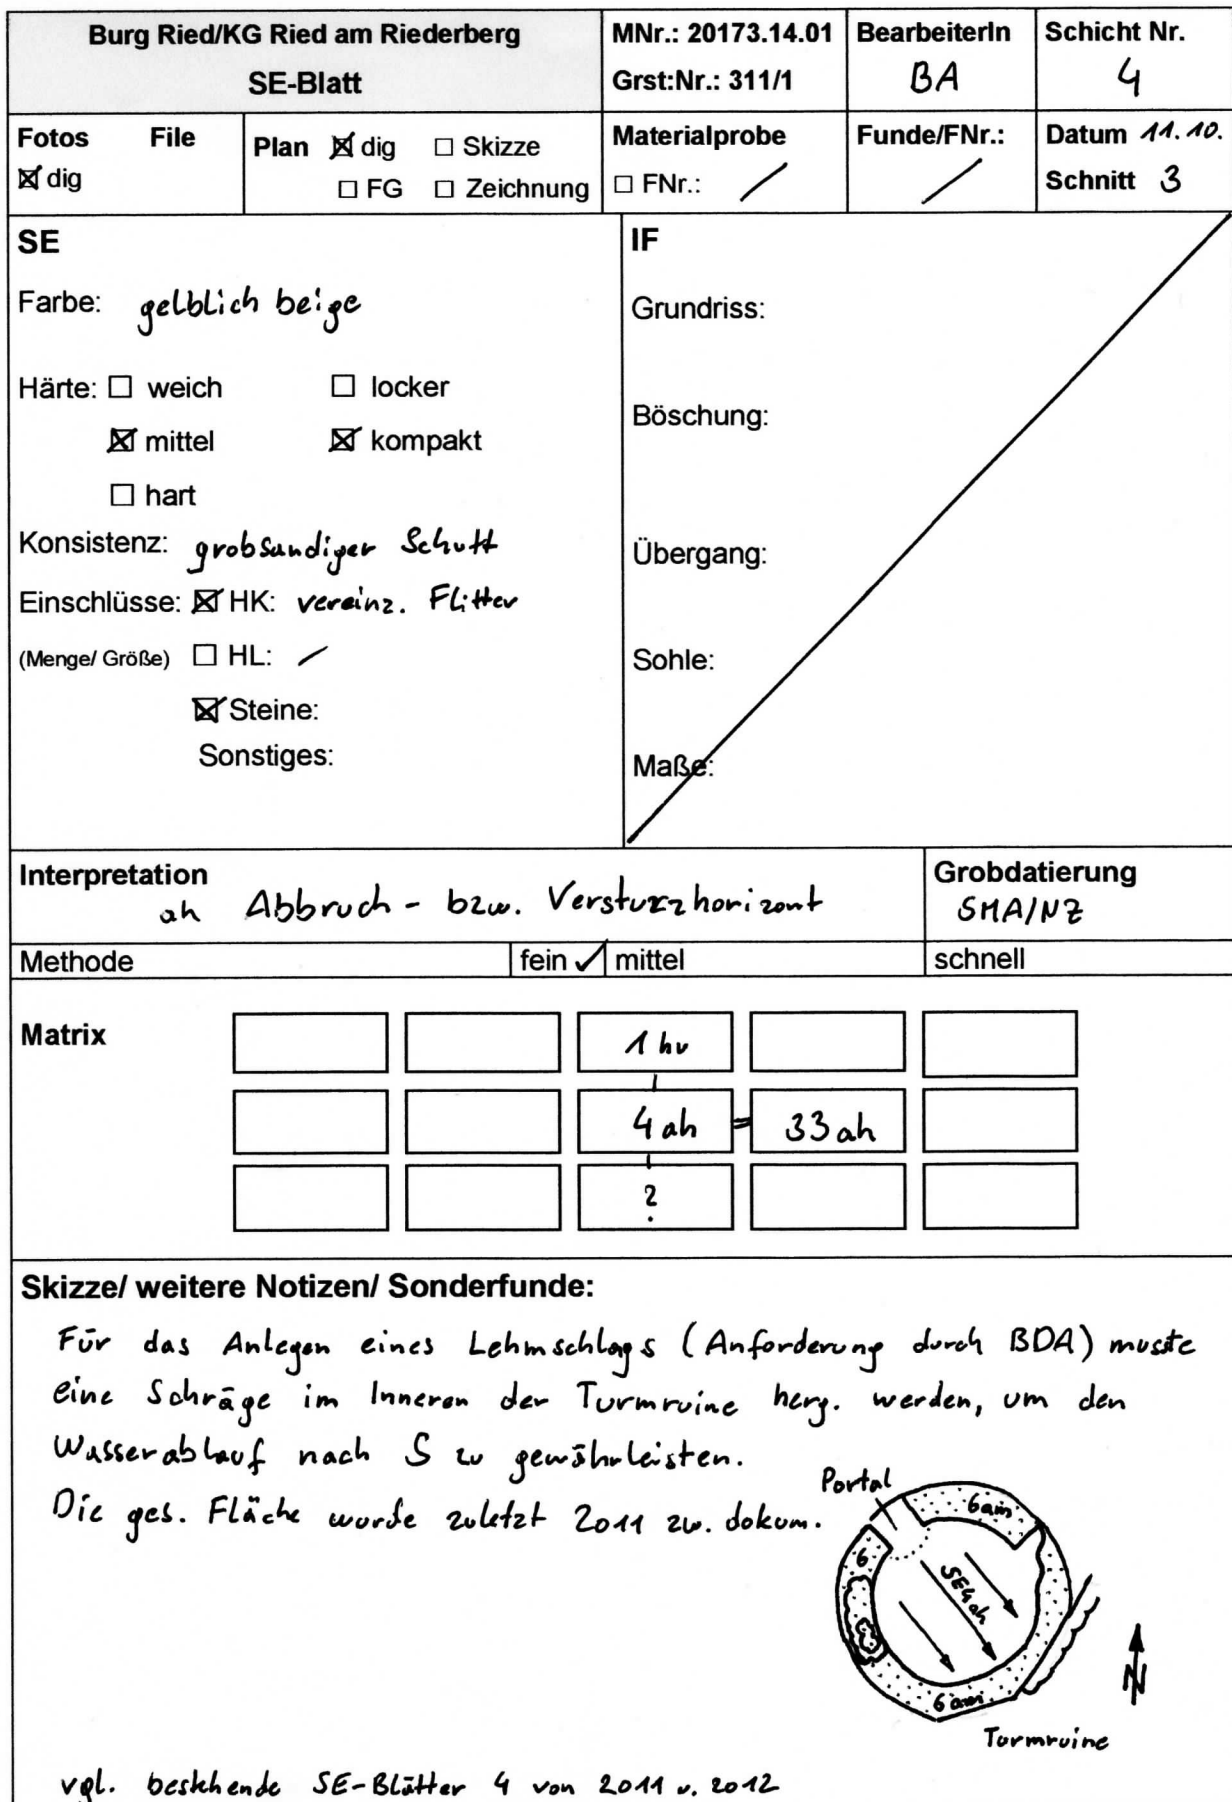 Burg Ried/KG Ried am Riederberg
SE-Blatt
MNr.: 20173.14.01
Grst:Nr.: 311/1
BearbeiterIn
BA
Schicht Nr.
4
Fotos File
☒ dig
Plan ☒ dig ☐ Skizze
☐ FG ☐ Zeichnung
Materialprobe
☐ FNr.: /
Funde/FNr.:
/
Datum 11.10.
Schnitt 3
SE
Farbe: gelblich beige
Härte: ☐ weich ☐ locker
☒ mittel ☒ kompakt
☐ hart
Konsistenz: grobsandiger Schutt
Einschlüsse: ☒ HK: vereinz. Flitter
(Menge/ Größe) ☐ HL: /
☒ Steine:
Sonstiges:
IF
Grundriss:
Böschung:
Übergang:
Sohle:
Maße:
Interpretation
ah Abbruch- bzw. Versturzhorizont
Grobdatierung
SMA/NZ
Methode fein ✓ mittel schnell
Matrix
1 hv
4 ah = 33 ah
?
Skizze/ weitere Notizen/ Sonderfunde:
Für das Anlegen eines Lehmschlags (Anforderung durch BDA) musste
eine Schräge im Inneren der Turmruine herg. werden, um den
Wasserablauf nach S zu gewährleisten.
Die ges. Fläche wurde zuletzt 2011 zw. dokum.
Portal
6am
6
SE4ah
6am
N
Turmruine
vgl. bestehende SE-Blätter 4 von 2011 u. 2012